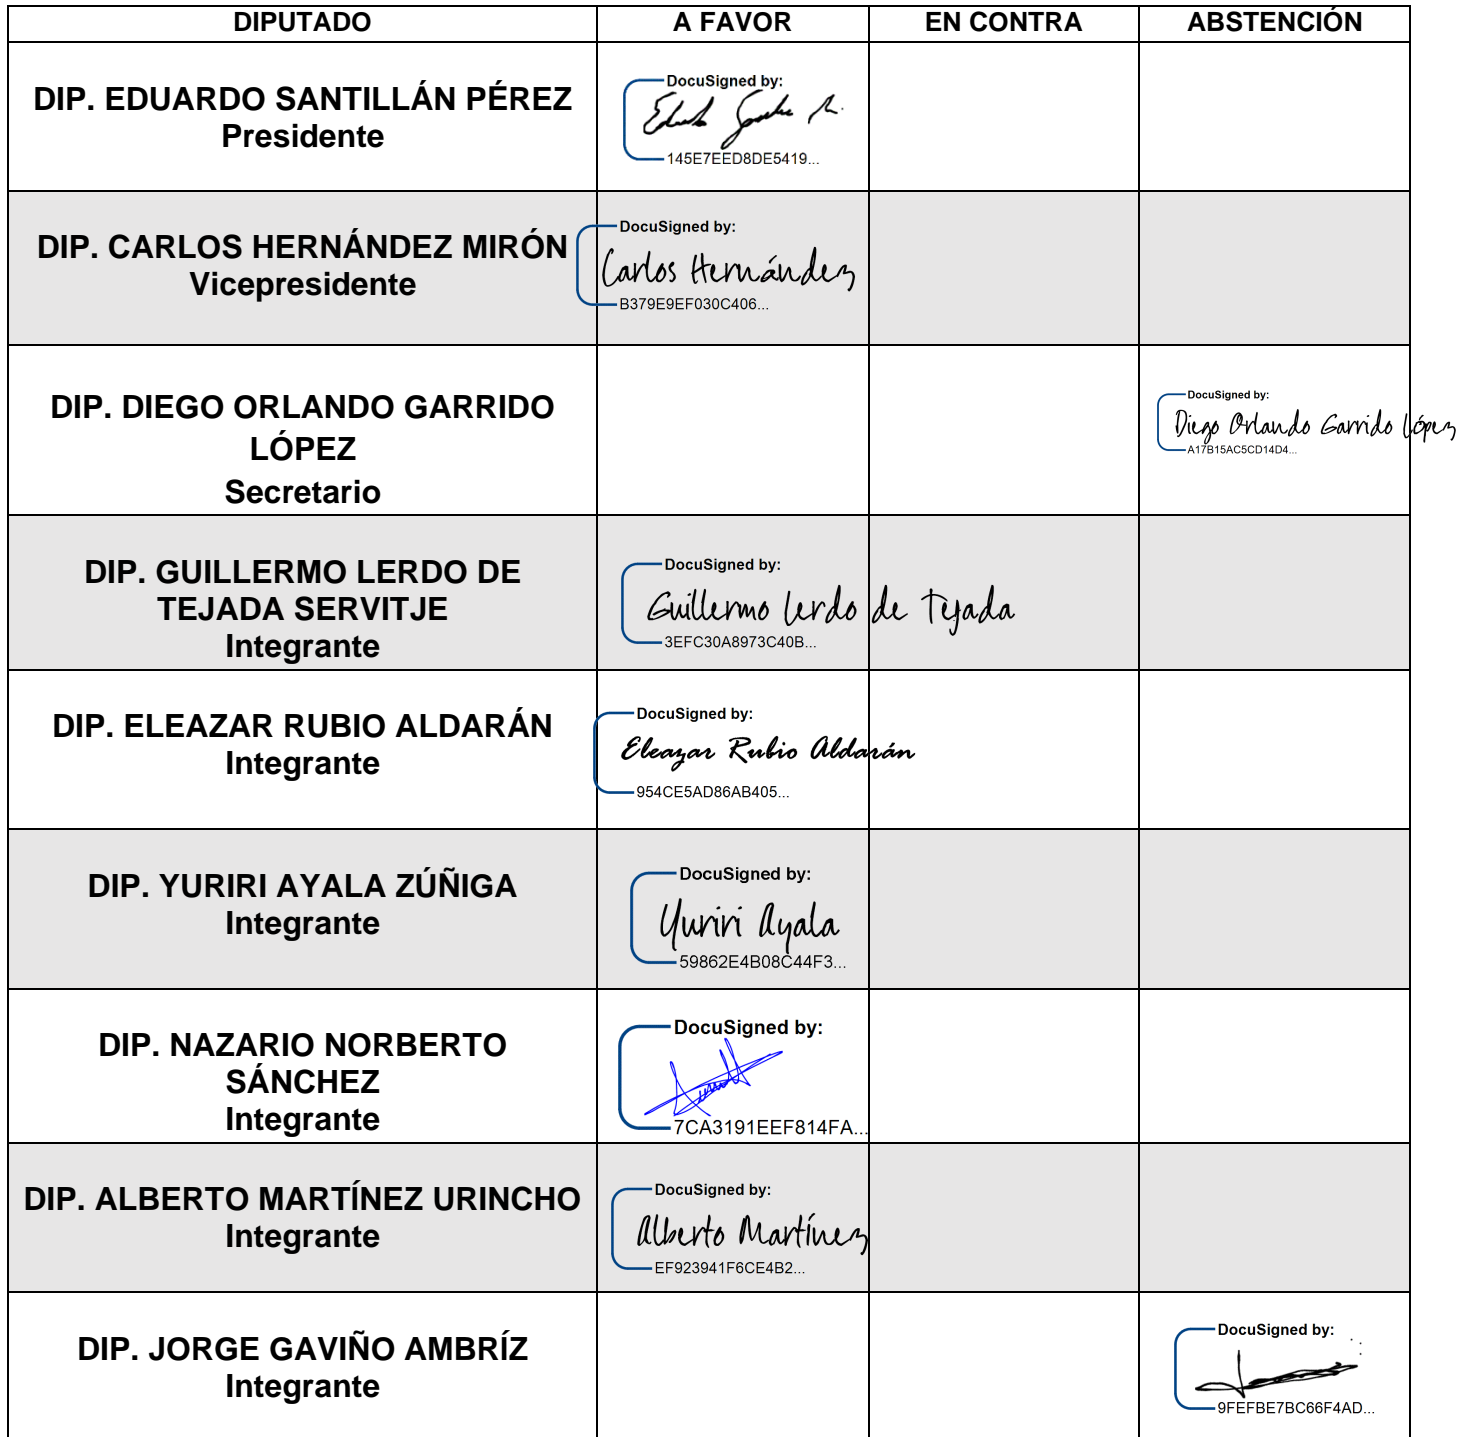 DIPUTADO A FAVOR EN CONTRA ABSTENCIÓN
DIP. EDUARDO SANTILLÁN PÉREZ
Presidente
DocuSigned by:
145E7EED8DE5419...
DIP. CARLOS HERNÁNDEZ MIRÓN
Vicepresidente
DocuSigned by:
Carlos Hernández
B379E9EF030C406...
DIP. DIEGO ORLANDO GARRIDO
LÓPEZ
Secretario
DocuSigned by:
Diego Orlando Garrido López
A17B15AC5CD14D4...
DIP. GUILLERMO LERDO DE
TEJADA SERVITJE
Integrante
DocuSigned by:
Guillermo Lerdo de Tejada
3EFC30A8973C40B...
DIP. ELEAZAR RUBIO ALDARÁN
Integrante
DocuSigned by:
Eleazar Rubio Aldarán
954CE5AD86AB405...
DIP. YURIRI AYALA ZÚÑIGA
Integrante
DocuSigned by:
Yuriri Ayala
59862E4B08C44F3...
DIP. NAZARIO NORBERTO
SÁNCHEZ
Integrante
DocuSigned by:
7CA3191EEF814FA...
DIP. ALBERTO MARTÍNEZ URINCHO
Integrante
DocuSigned by:
Alberto Martínez
EF923941F6CE4B2...
DIP. JORGE GAVIÑO AMBRÍZ
Integrante
DocuSigned by:
9FEFBE7BC66F4AD...